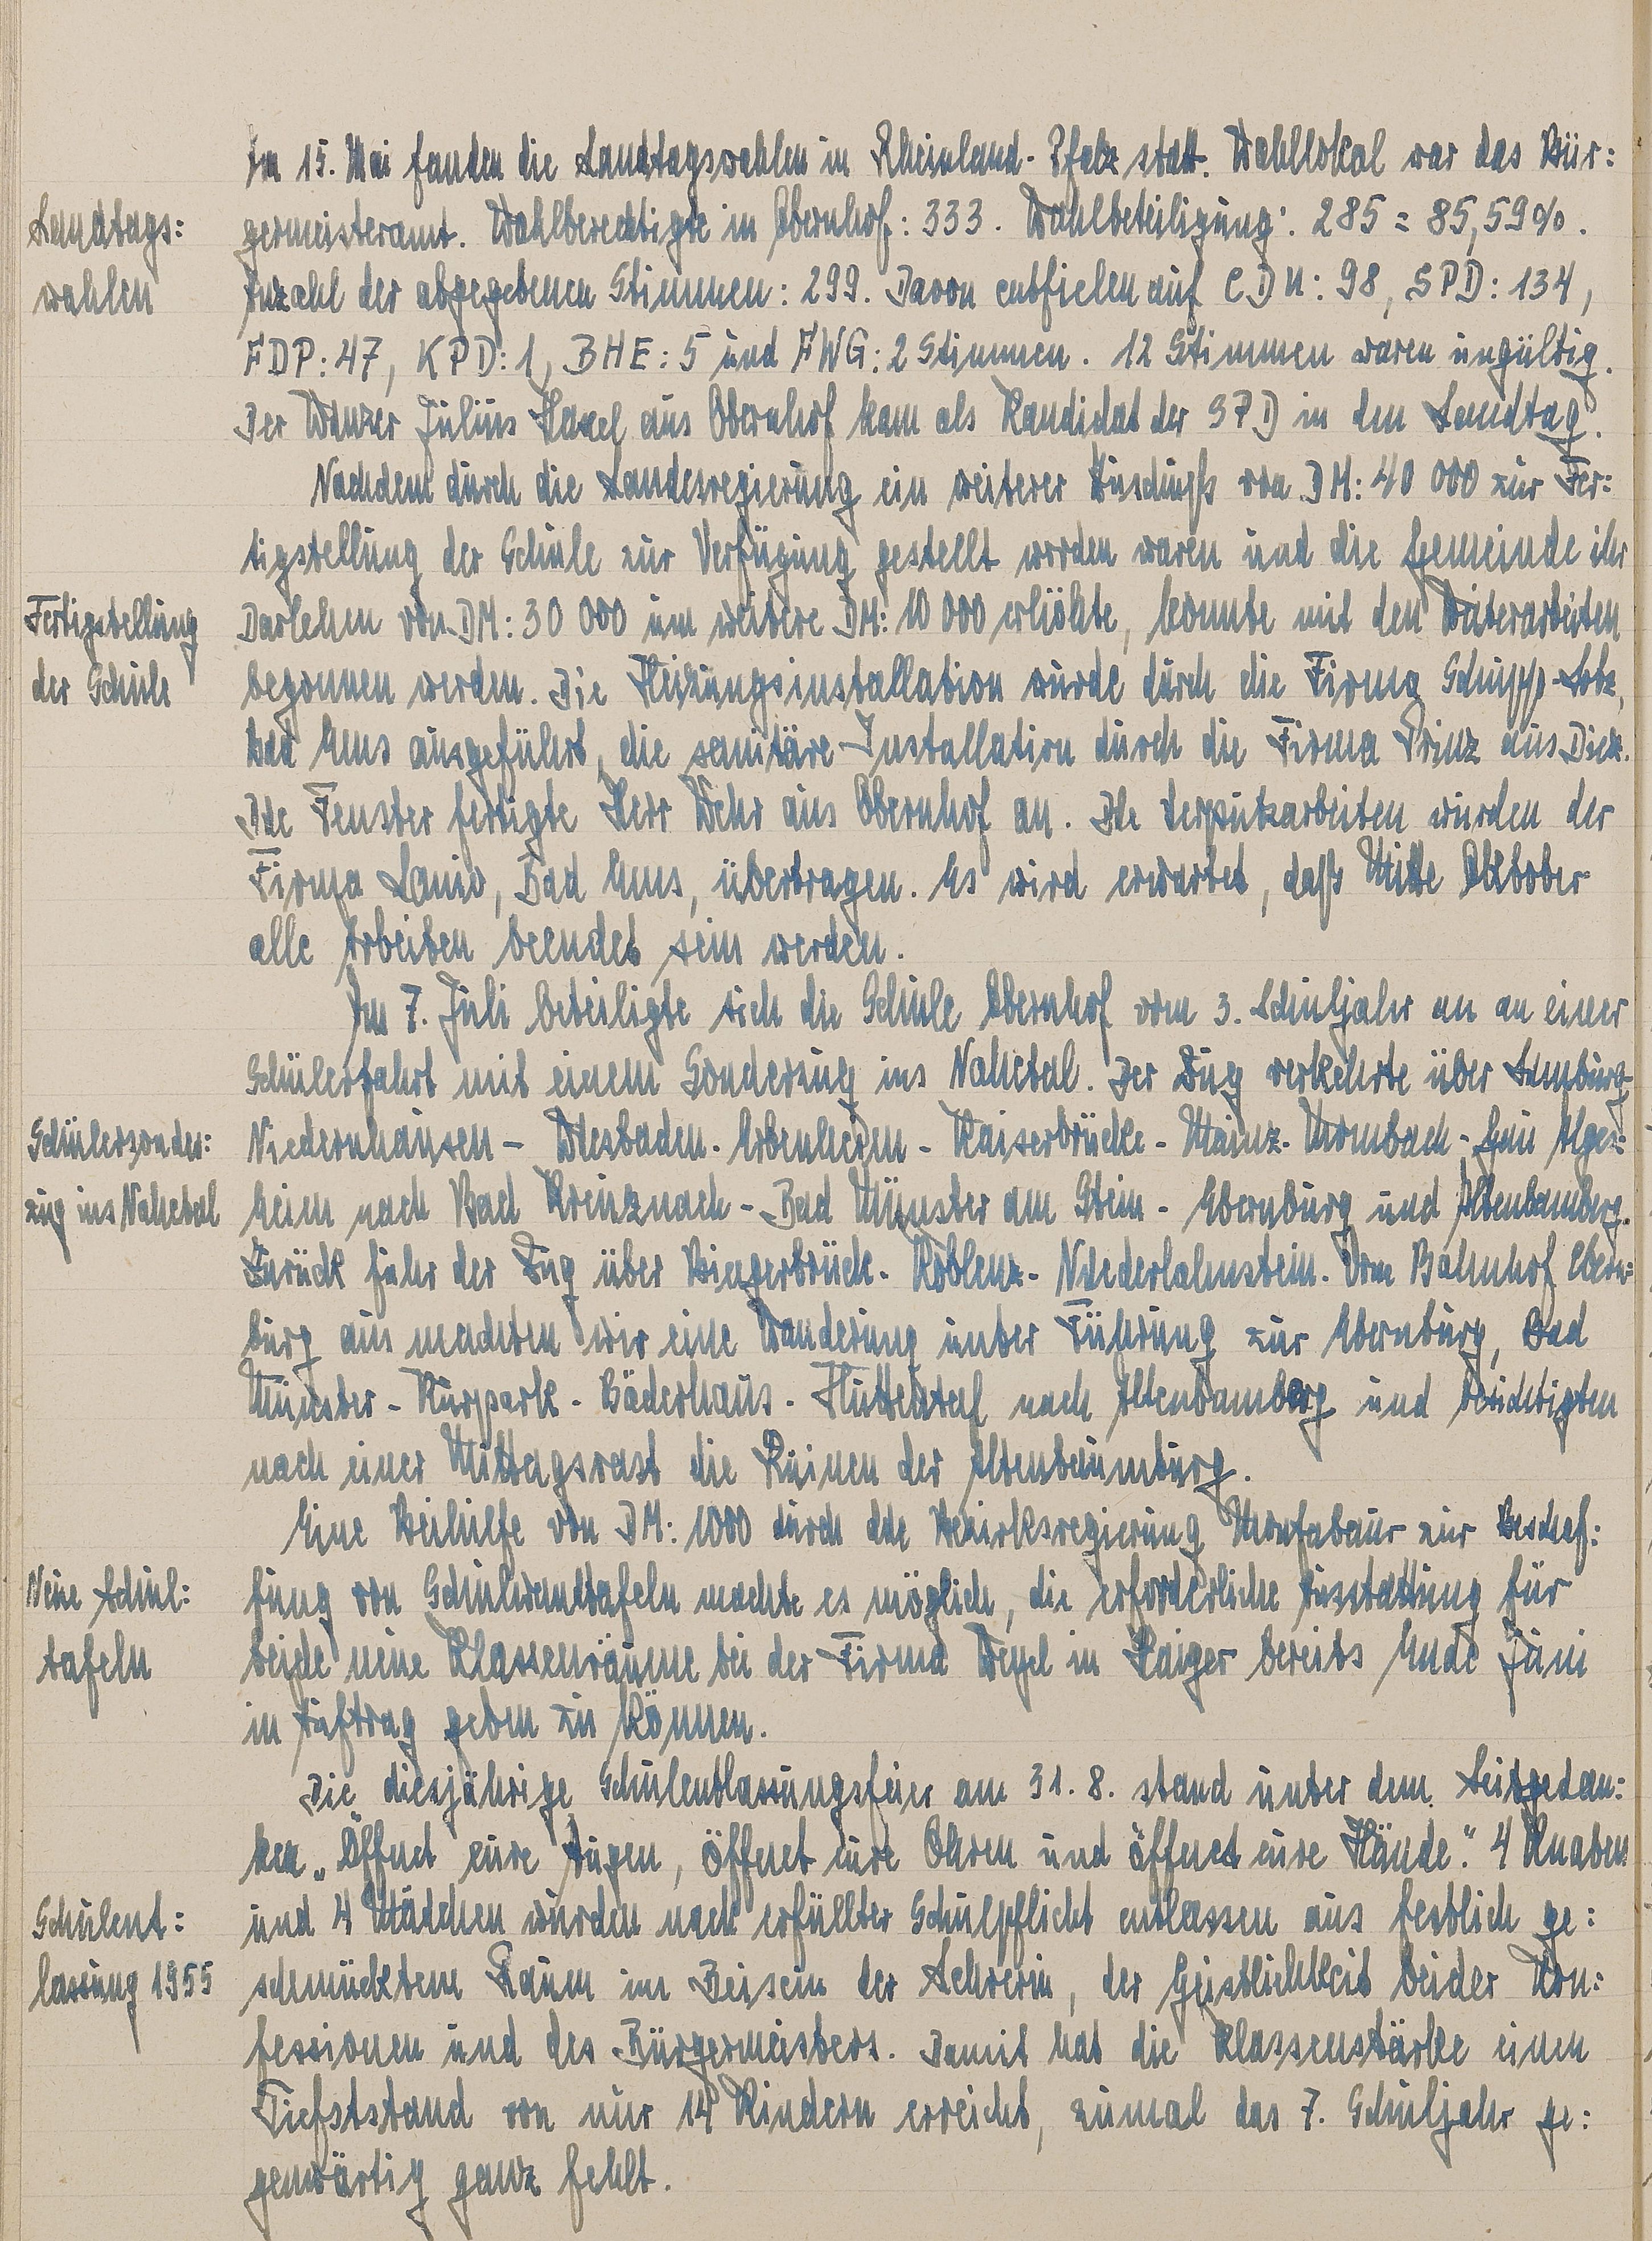 Am 15. Mai fanden die Landtagswahlen in Rheinland-Pfalz statt. Wahllokal war das Bür:
Landtags:
wahlen
germeisteramt. Wahlberechtigte in Obernhof: 333. Wahlbeteiligung: 285 = 85,59%.
Anzahl der abgegebenen Stimmen: 299. Davon entfielen auf CDU: 98, SPD: 134,
FDP: 47, KPD: 1, BHE: 5 und FWG: 2 Stimmen. 12 Stimmen waren ungültig.
Der Winzer Julius Haxel aus Obernhof kam als Kandidat der SPD in den Landtag.
Nachdem durch die Landesregierung ein weiterer Zuschuß von DM: 40 000 zur Fer:
tigstellung der Schule zur Verfügung gestellt worden waren und die Gemeinde ihr
Fertigstellung
der Schule
Darlehen von DM: 30 000 um weitere DM: 10 000 erhöhte, konnte mit den Weiterarbeiten
begonnen werden. Die Heizungsinstallation wurde durch die Firma Schupp-Lotz,
Bad Ems ausgeführt, die sanitäre Installation durch die Firma Prinz aus Diez.
Die Fenster fertigte Herr Wehr aus Obernhof an. Die Verputzarbeiten wurden der
Firma Lanio, Bad Ems, übertragen. Es wird erwartet, daß Mitte Oktober
alle Arbeiten beendet sein werden.
Am 7. Juli beteiligte sich die Schule Obernhof vom 3. Schuljahr an an einer
Schülerfahrt mit einem Sonderzug ins Nahetal. Der Zug verkehrte über Limburg
Schülersonder:
zug ins Nahetal
Niedernhausen - Wiesbaden - Erbenheim - Kaiserbrücke - Mainz-Mombach - Gau Alges:
heim nach Bad Kreuznach - Bad Münster am Stein - Ebernburg und Altenbamberg.
Zurück fuhr der Zug über Bingerbrück - Koblenz - Niederlahnstein. Vom Bahnhof Ebern:
burg aus machten wir eine Wanderung unter Führung zur Ebernburg, Bad
Münster - Kurpark - Bäderhaus - Huttental nach Altenbamberg und besichtigten
nach einer Mittagsrast die Ruinen der Altenbaumburg.
Eine Beihilfe von DM: 1000 durch die Bezirksregierung Montabaur zur Beschaf:
Neue Schul:
tafeln
fung von Schulwandtafeln machte es möglich, die erforderliche Ausstattung für
beide neue Klassenräume bei der Firma Weyel in Haiger bereits Ende Juni
in Auftrag geben zu können.
Die diesjährige Schulentlassungsfeier am 31. 8. stand unter dem Leitgedan:
ken „Öffnet eure Augen, öffnet eure Ohren und öffnet eure Hände." 4 Knaben
Schulent:
lassung 1955
und 4 Mädchen wurden nach erfüllter Schulpflicht entlassen aus festlich ge:
schmücktem Raum im Beisein der Lehrerin, der Geistlichkeit beider Kon:
fessionen und des Bürgermeisters. Damit hat die Klassenstärke einen
Tiefststand von nur 14 Kindern erreicht, zumal das 7. Schuljahr ge:
genwärtig ganz fehlt.